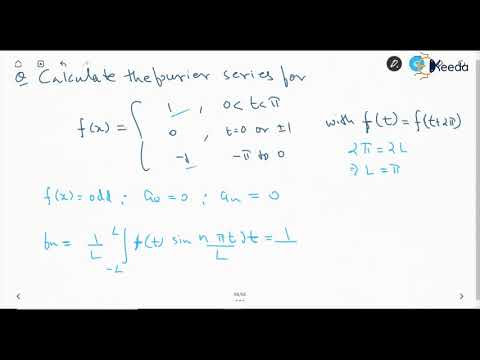 Q Calculate the fourier series for
f(x) = { 1 , 0 < t < π
0 , t=0 or ±1
-1 , -π to 0
with f(t) = f(t+2π)
2π = 2L
⇒ L = π
f(x) = odd ; a₀ = 0 ; aₙ = 0
bₙ = 1/L ∫_{-L}^{L} f(t) sin nπt/L dt = 1
Keeda